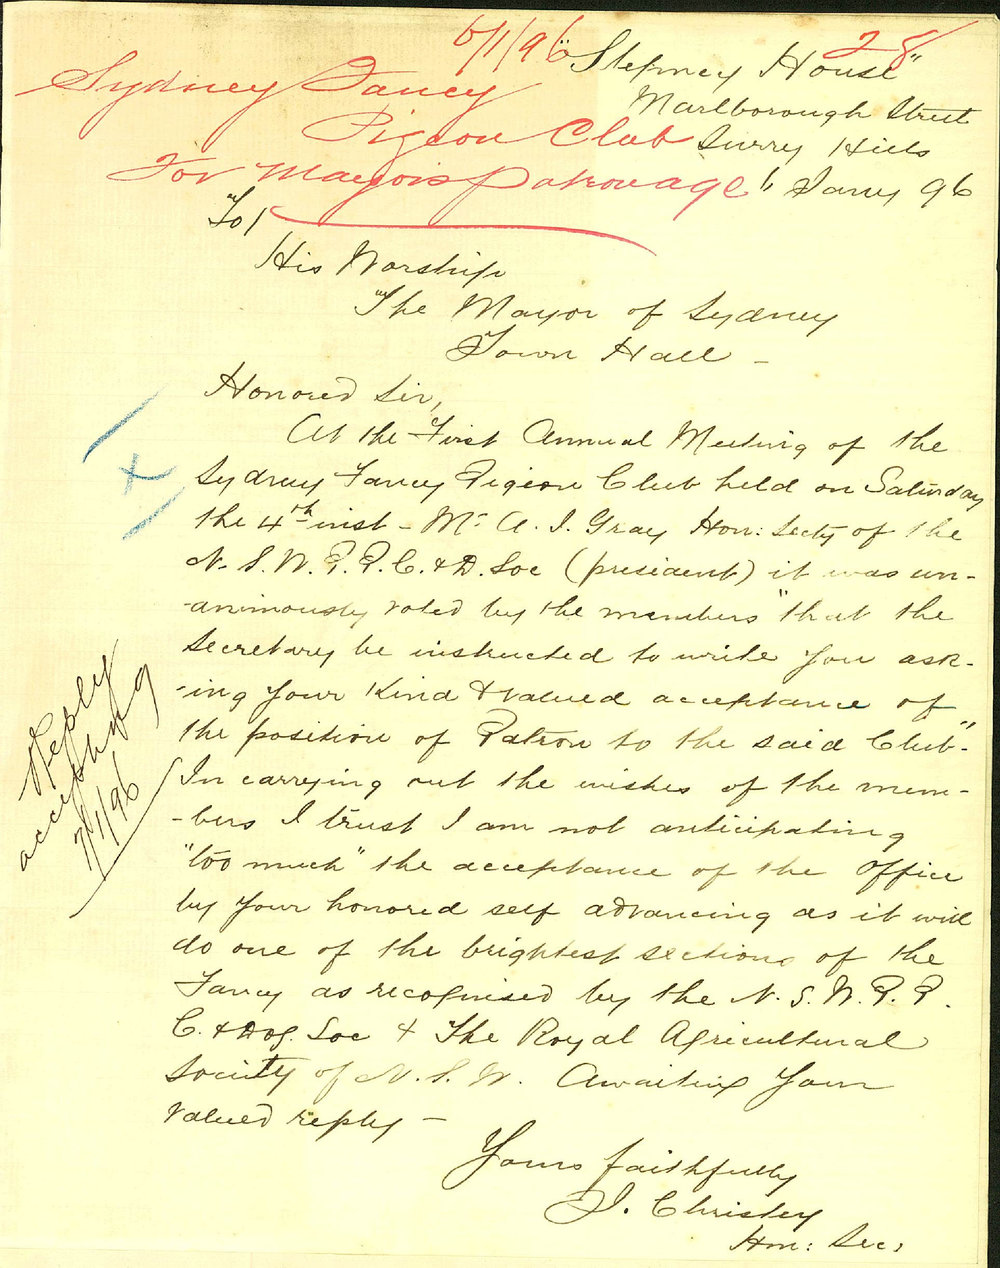 6/1/96
28
Sydney Fancy
Pigeon Club
For Mayors patronage
"Stepney House"
Marlborough Street
Surry Hills
6 Jany 96
To/
His Worship
The Mayor of Sydney
Town Hall –
Honored Sir,
At the First Annual Meeting of the
Sydney Fancy Pigeon Club held on Saturday
the 4th inst – Mr A. J. Gray Hon: Secty of the
N. S. W. P. P. C. & D. Soc (president) it was un-
-animously voted by the members "that the
Secretary be instructed to write you ask-
-ing your kind & valued acceptance of
the position of Patron to the said Club"-
In carrying out the wishes of the mem-
-bers I trust I am not anticipating
"too much" the acceptance of the office
by your honored self advancing as it will
do one of the brightest sections of the
Fancy as recognised by the N. S. W. P. P.
C. & Dog. Soc & The Royal Agricultural
Society of N. S. W. Awaiting Your
valued reply –
Yours faithfully
J. Christey
Hon: Sec:
Reply
accepting
7/1/96